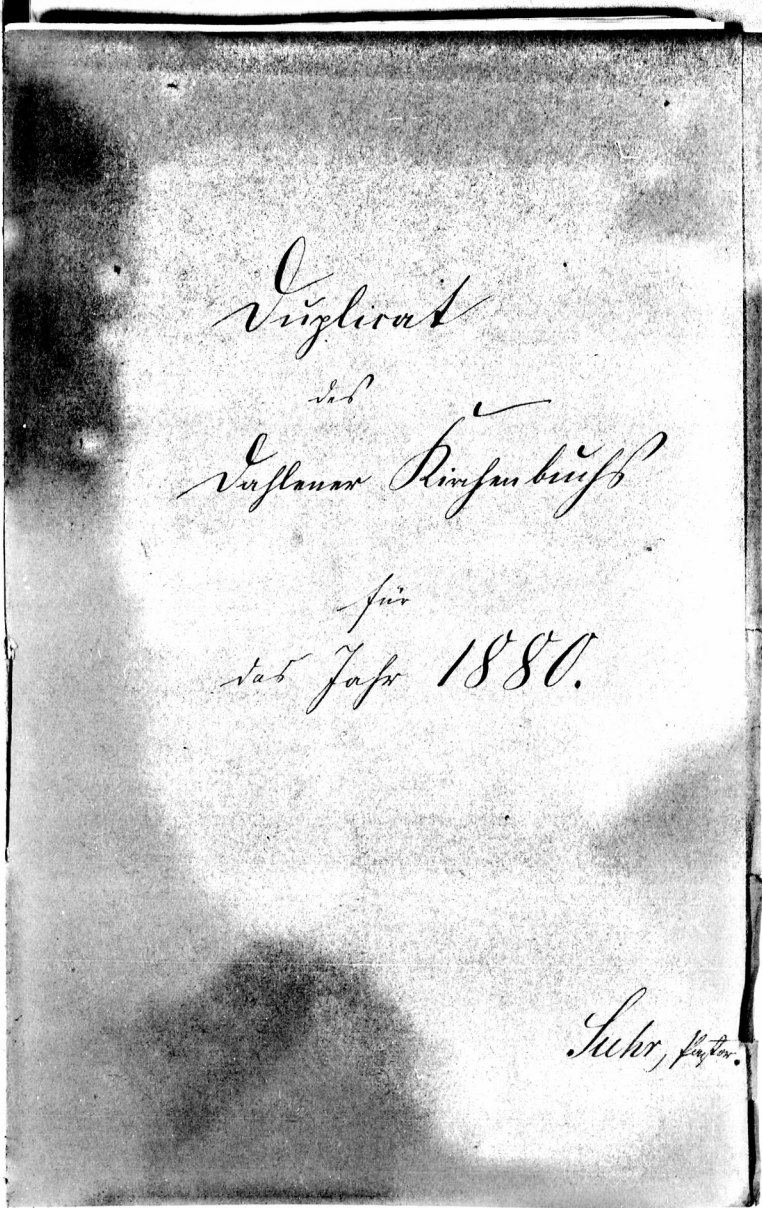 Duplicat
des
Dahlener Kirchenbuchs
für
das Jahr 1880.
Suhr, Pastor.